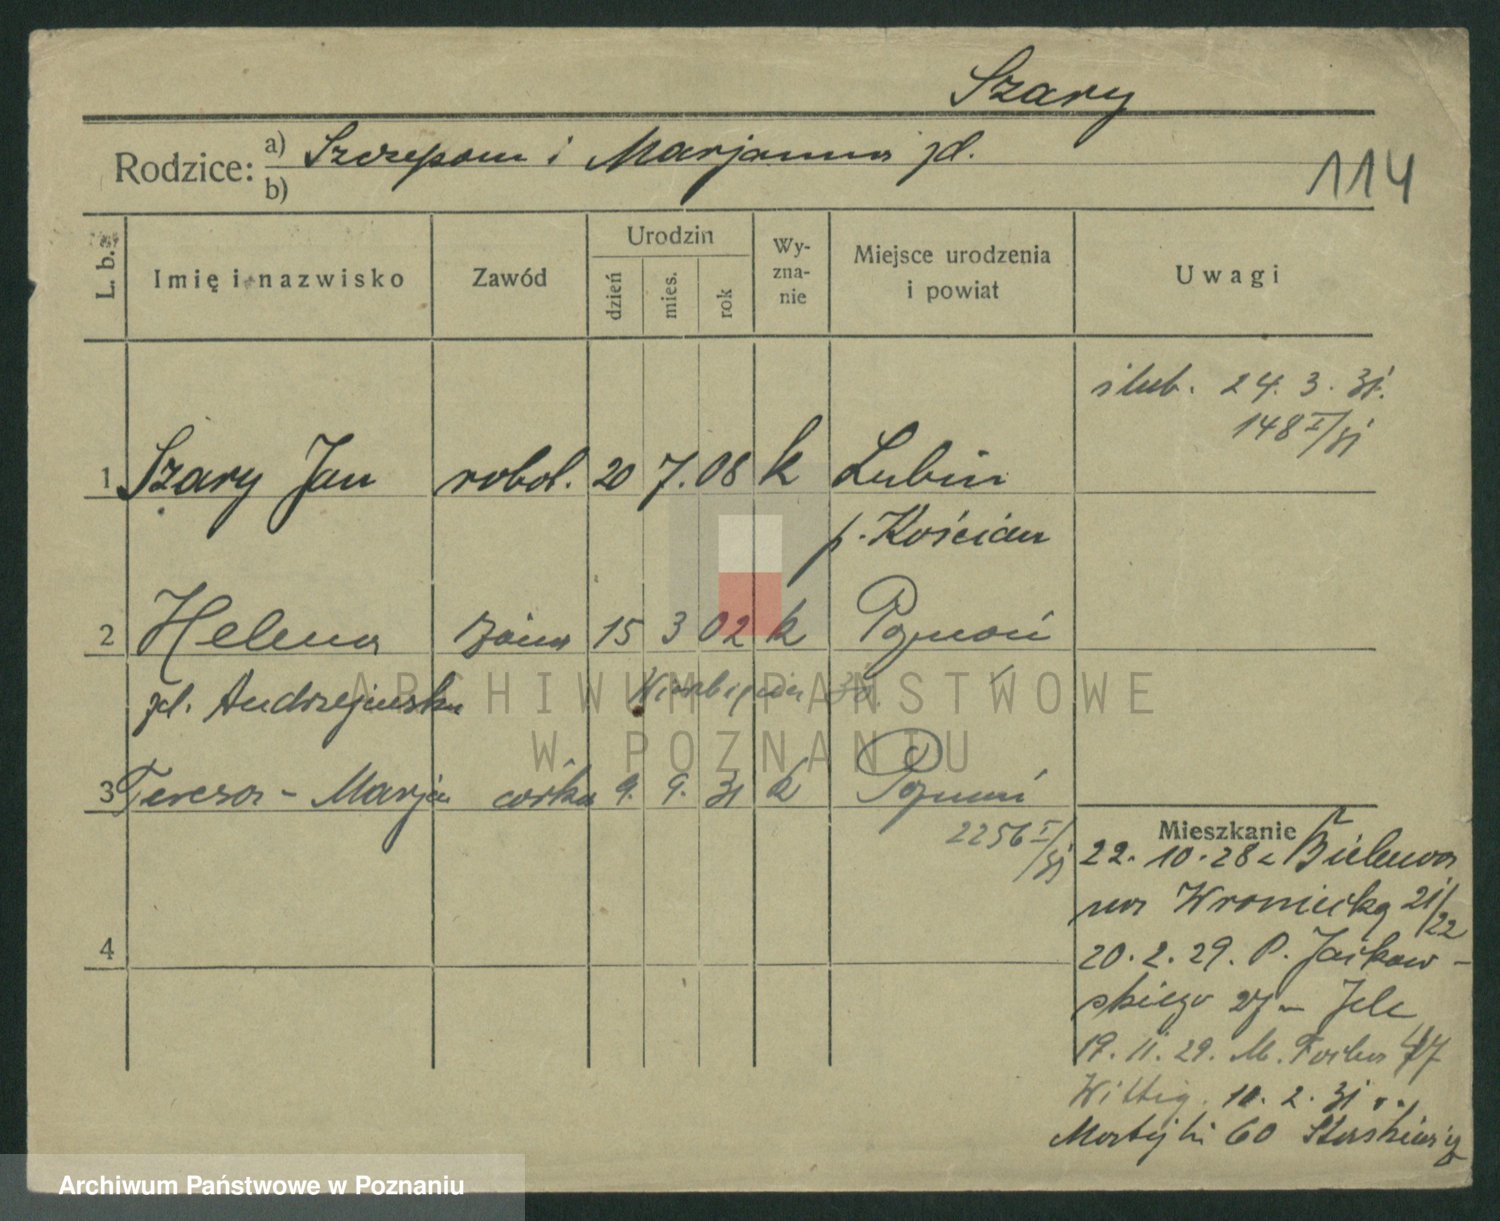 Szary
Rodzice: a) Szczepan i Marjanna zd.
b)
114
L. b. Imię i nazwisko Zawód Urodzin dzień mies. rok Wy-zna-nie Miejsce urodzenia i powiat Uwagi
ślub. 24. 3. 31.
148 I/31
1 Szary Jan robot. 20 7. 08 k Lubin
p. Kościan
2 Helena żona 15 3 02 k Poznań
zd. Andrzejewska
3 Teresa - Marja córka 9. 9. 31 k Poznań
2256 I/31
4
Mieszkanie
22. 10. 28 z Bielewa
na Wroniecką 21/22
20. 2. 29. P. Jackow-
skiego 27 -
19. 11. 29. M. 47
Wittig. 10. 2. 31
60
ARCHIWUM PAŃSTWOWE
W POZNANIU
Archiwum Państwowe w Poznaniu